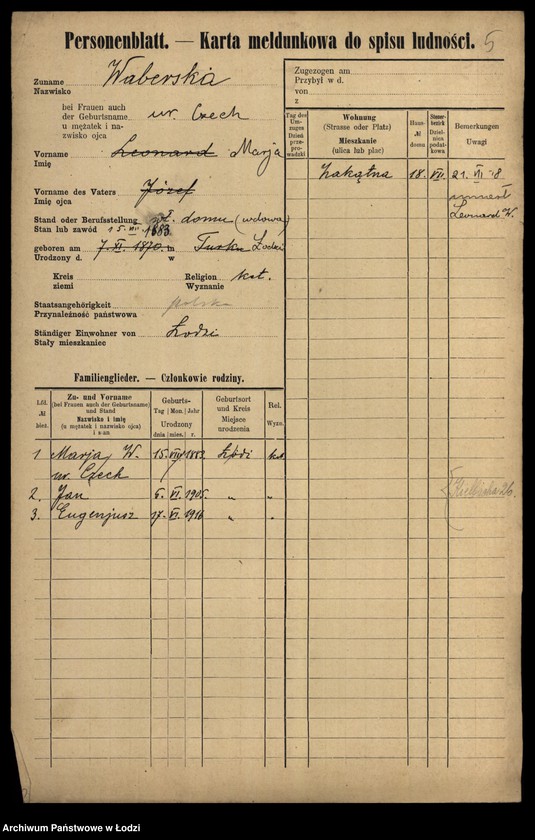 Personenblatt. — Karta meldunkowa do spisu ludności. 5
Zuname
Nazwisko
Waberska
bei Frauen auch
der Geburtsname
u mężatek i na-
zwisko ojca
ur. Czech
Vorname
Imię
Leonard Marja
Vorname des Vaters
Imię ojca
Józef
Stand oder Berufsstellung
Stan lub zawód
domu (wdowa)
15. VIII 1883
geboren am 7. XI. 1870 in
Urodzony d. w
Łodzi
Kreis
ziemi
Religion
Wyznanie
kat.
Staatsangehörigkeit
Przynależność państwowa
polska
Ständiger Einwohner von
Stały mieszkaniec
Łodzi
Zugezogen am
Przybył w d.
von
z
Tag des Um-zuges
Dzień prze-prowadzki
Wohnung
(Strasse oder Platz)
Mieszkanie
(ulica lub plac)
Haus-
№
domu
Steuer-
bezirk
Dziel-
nica
podat-
kowa
Bemerkungen
Uwagi
Zakątna 18. VII. 21. VII 18
umarł
Leonard W.
Familienglieder. — Członkowie rodziny.
Lfd.
№
bież.
Zu- und Vorname
(bei Frauen auch der Geburtsname)
und Stand
Nazwisko i imię
(u mężatek i nazwisko ojca)
i stan
Geburts-
Tag Mon. Jahr
Urodzony
dnia mies. r.
Geburtsort
und Kreis
Miejsce
urodzenia
Rel.
Wyzn.
1 Marja W. 15. VIII 1883 Łódź kat
ur. Czech
2. Jan 6. VI. 1905 " "
3. Eugenjusz 17. XI. 1916 " "
Archiwum Państwowe w Łodzi